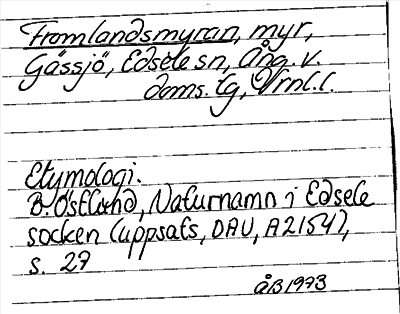 Fromlandsmyran, myr,
Gässjö, Edsele sn, Ång. v.
doms. tg, Vrnl. l.
Etymologi.
B. Östlund, Naturnamn i Edsele
socken (uppsats, DAU, A2154),
s. 27
ÅB 1973